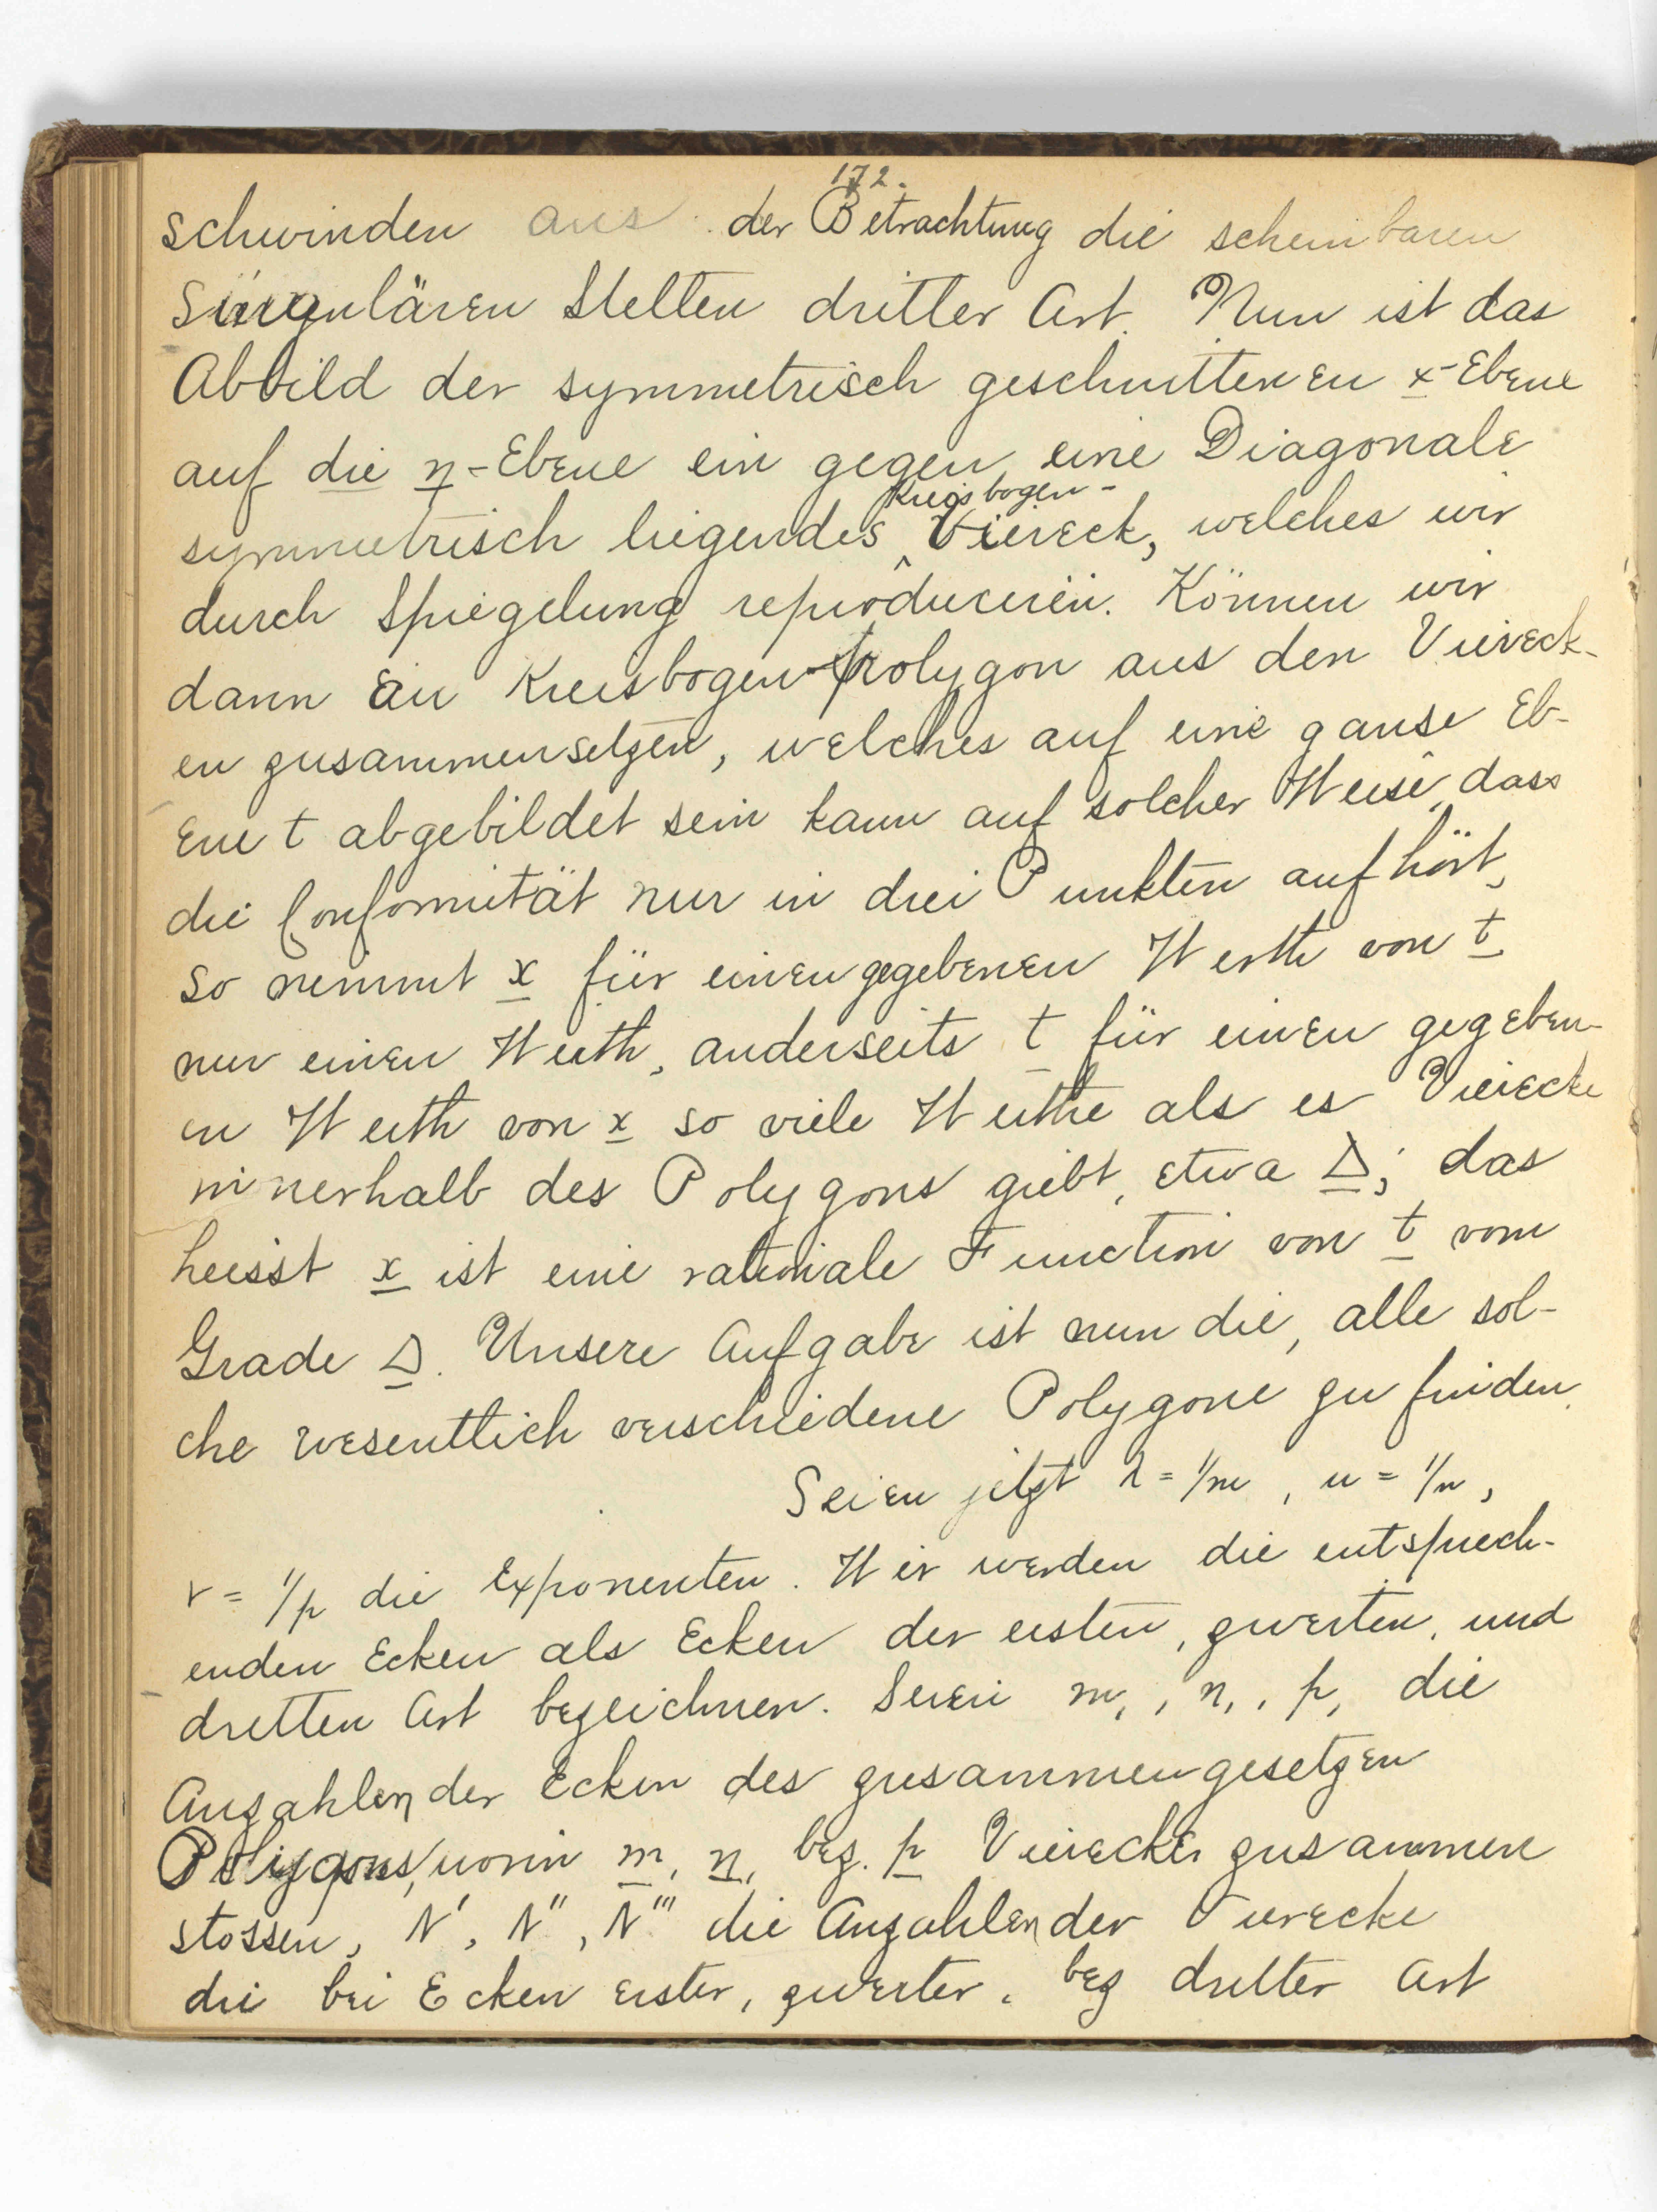 172.
schwinden aus der Betrachtung die scheinbaren
singulären Stellen dritter Art. Nun ist das
Abbild der symmetrisch geschnittenen x-Ebene
auf die η-Ebene ein gegen eine Diagonale
Kreisbogen-
symmetrisch liegendes Viereck, welches wir
durch Spiegelung reproducieren. Können wir
dann ein Kreisbogen-polygon aus den Viereck-
en zusammensetzen, welches auf eine ganse Eb-
ene t abgebildet sein kann auf solcher Weise, dass
die Conformität nur in drei Punkten aufhört,
so nimmt x für einen gegebenen Werth von t
nur einen Werth, anderseits t für einen gegeben-
en Werth von x so viele Werthe als es Vierecke
innerhalb des Polygons giebt, etwa Δ; das
heisst x ist eine rationale Function von t vom
Grade Δ. Unsere Aufgabe ist nun die, alle sol-
che wesentlich verschiedene Polygone zu finden.
Seien jetzt λ = 1/m, μ = 1/n,
ν = 1/p die Exponenten. Wir werden die entsprech-
enden Ecken als Ecken der ersten, zweiten, und
dritten Art bezeichnen. Seien m₁, n₁, p₁ die
Anzahlen der Ecken des zusammengesetzen
Polygons, worin m, n, bez. p Vierecke zusammen
stossen, N', N'', N''' die Anzahlen der Vierecke
die bei Ecken erster, zweiter, bez dritter Art